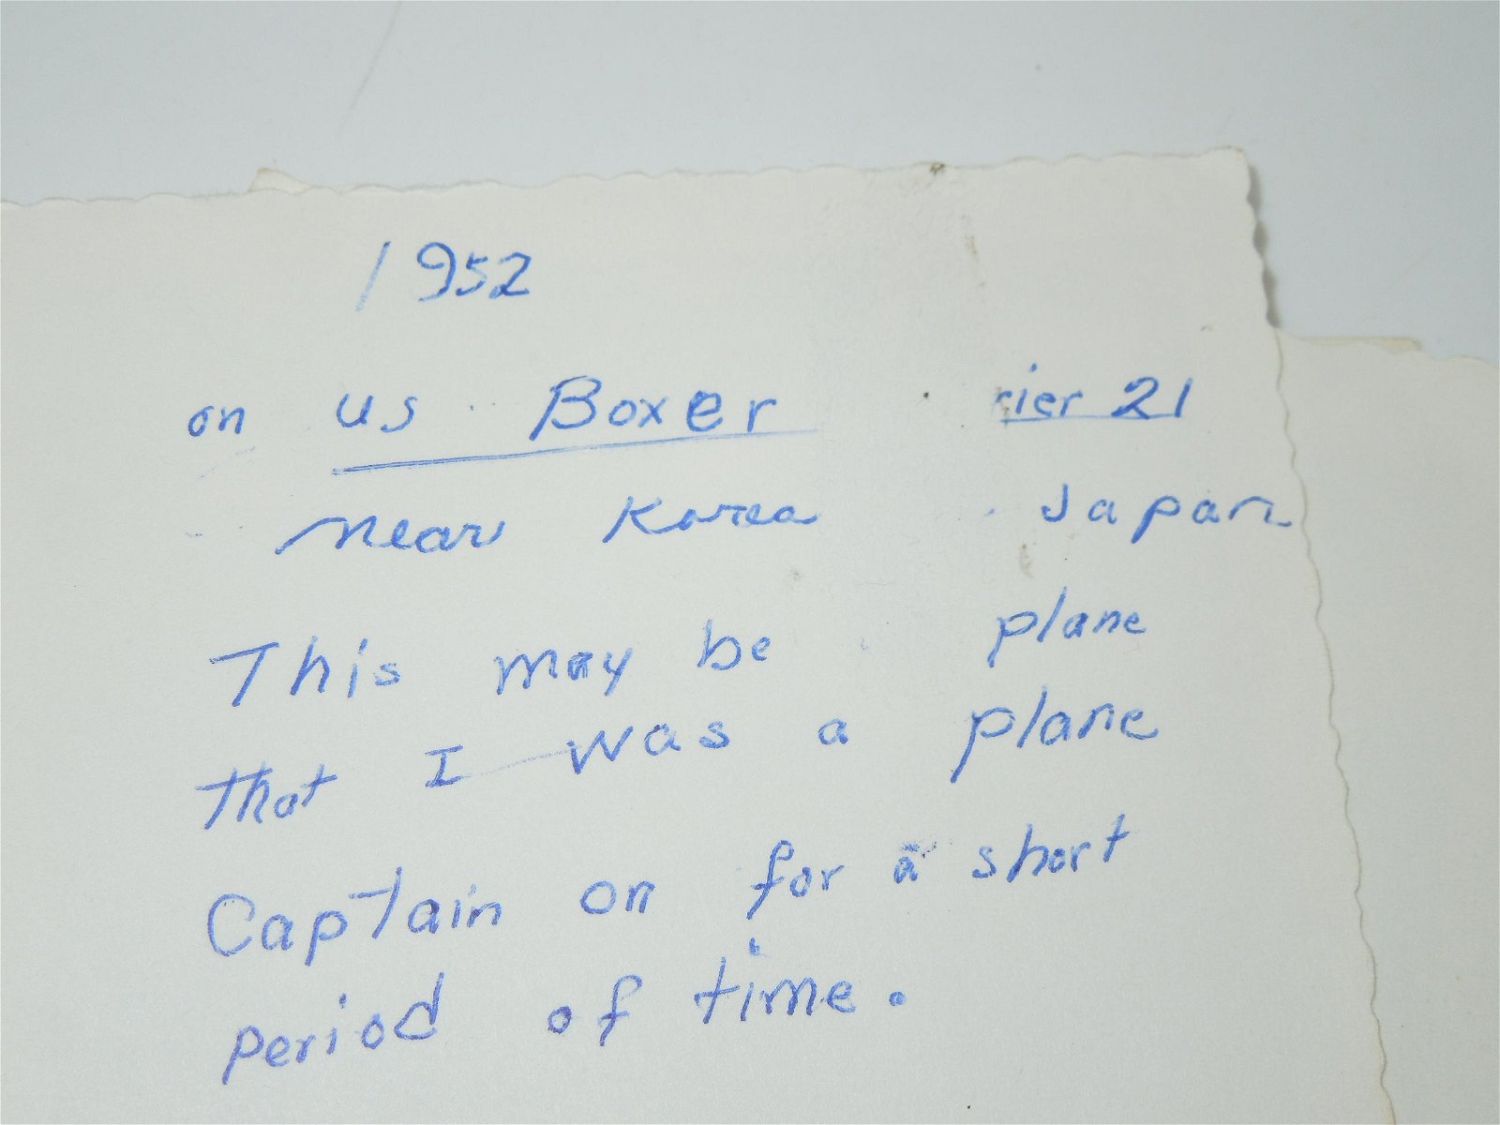 1952
on us Boxer rier 21
near Korea Japan
This may be plane
that I was a plane
Captain on for a short
period of time.